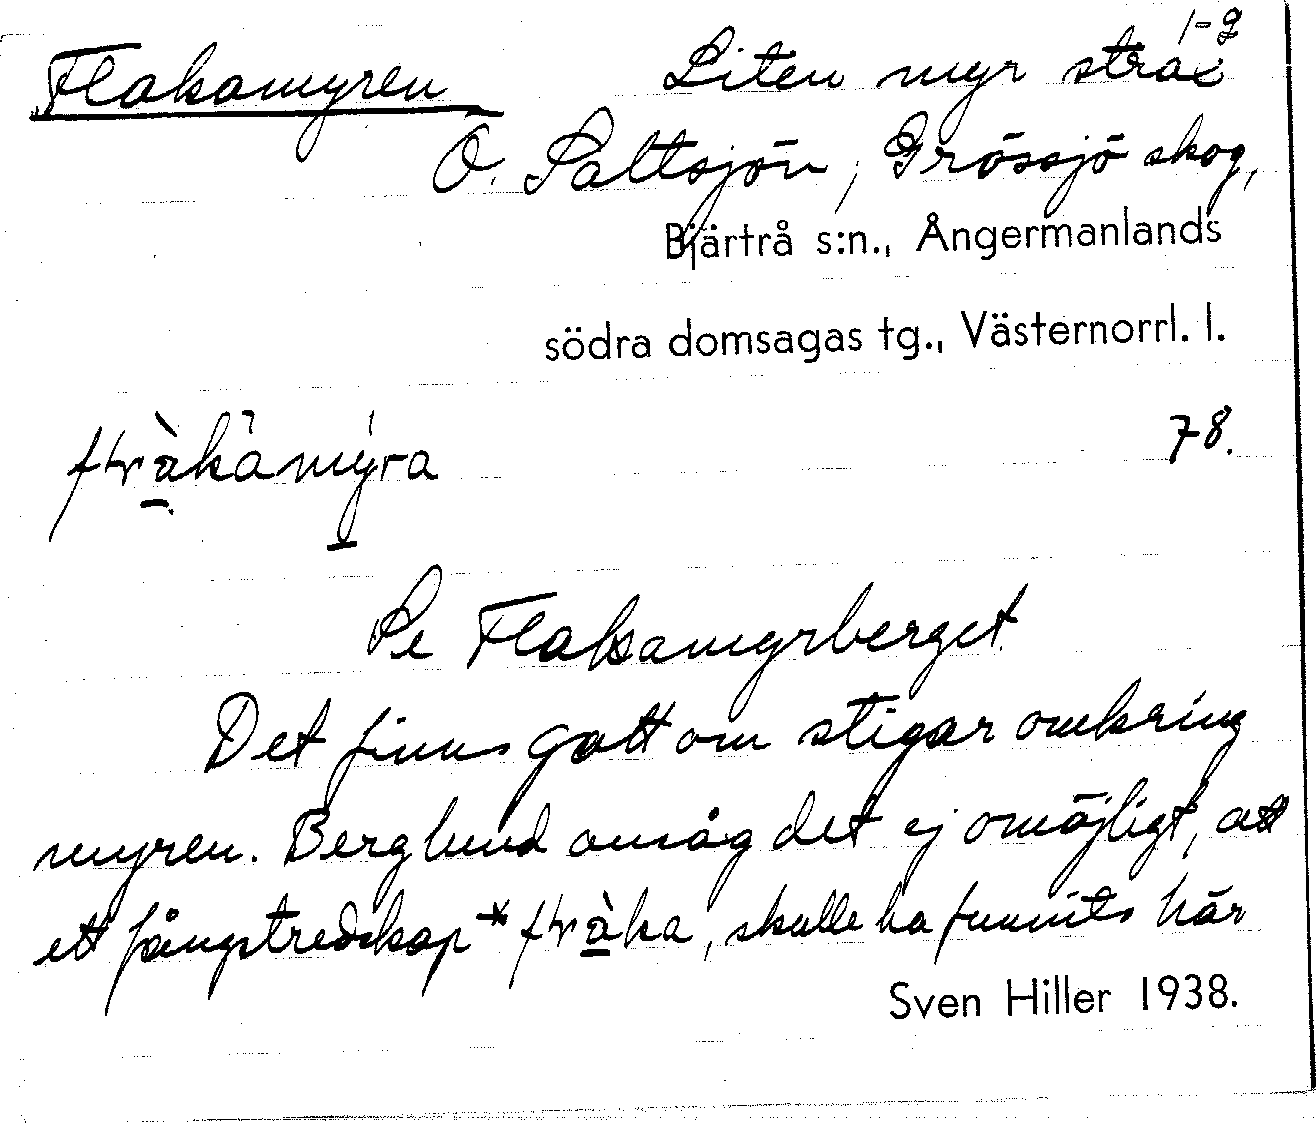 1-2
Flakamyren Liten myr strax
Ö. Saltsjön, Grössjö skog,
Bjärtrå s:n., Ångermanlands
södra domsagas tg., Västernorrl. l.
78.
Se Flakamyrberget
Det finns gott om stigar omkring
myren. Berglund ansåg det ej omöjligt, att
ett fångstredskap * skulle ha funnits här
Sven Hiller 1938.